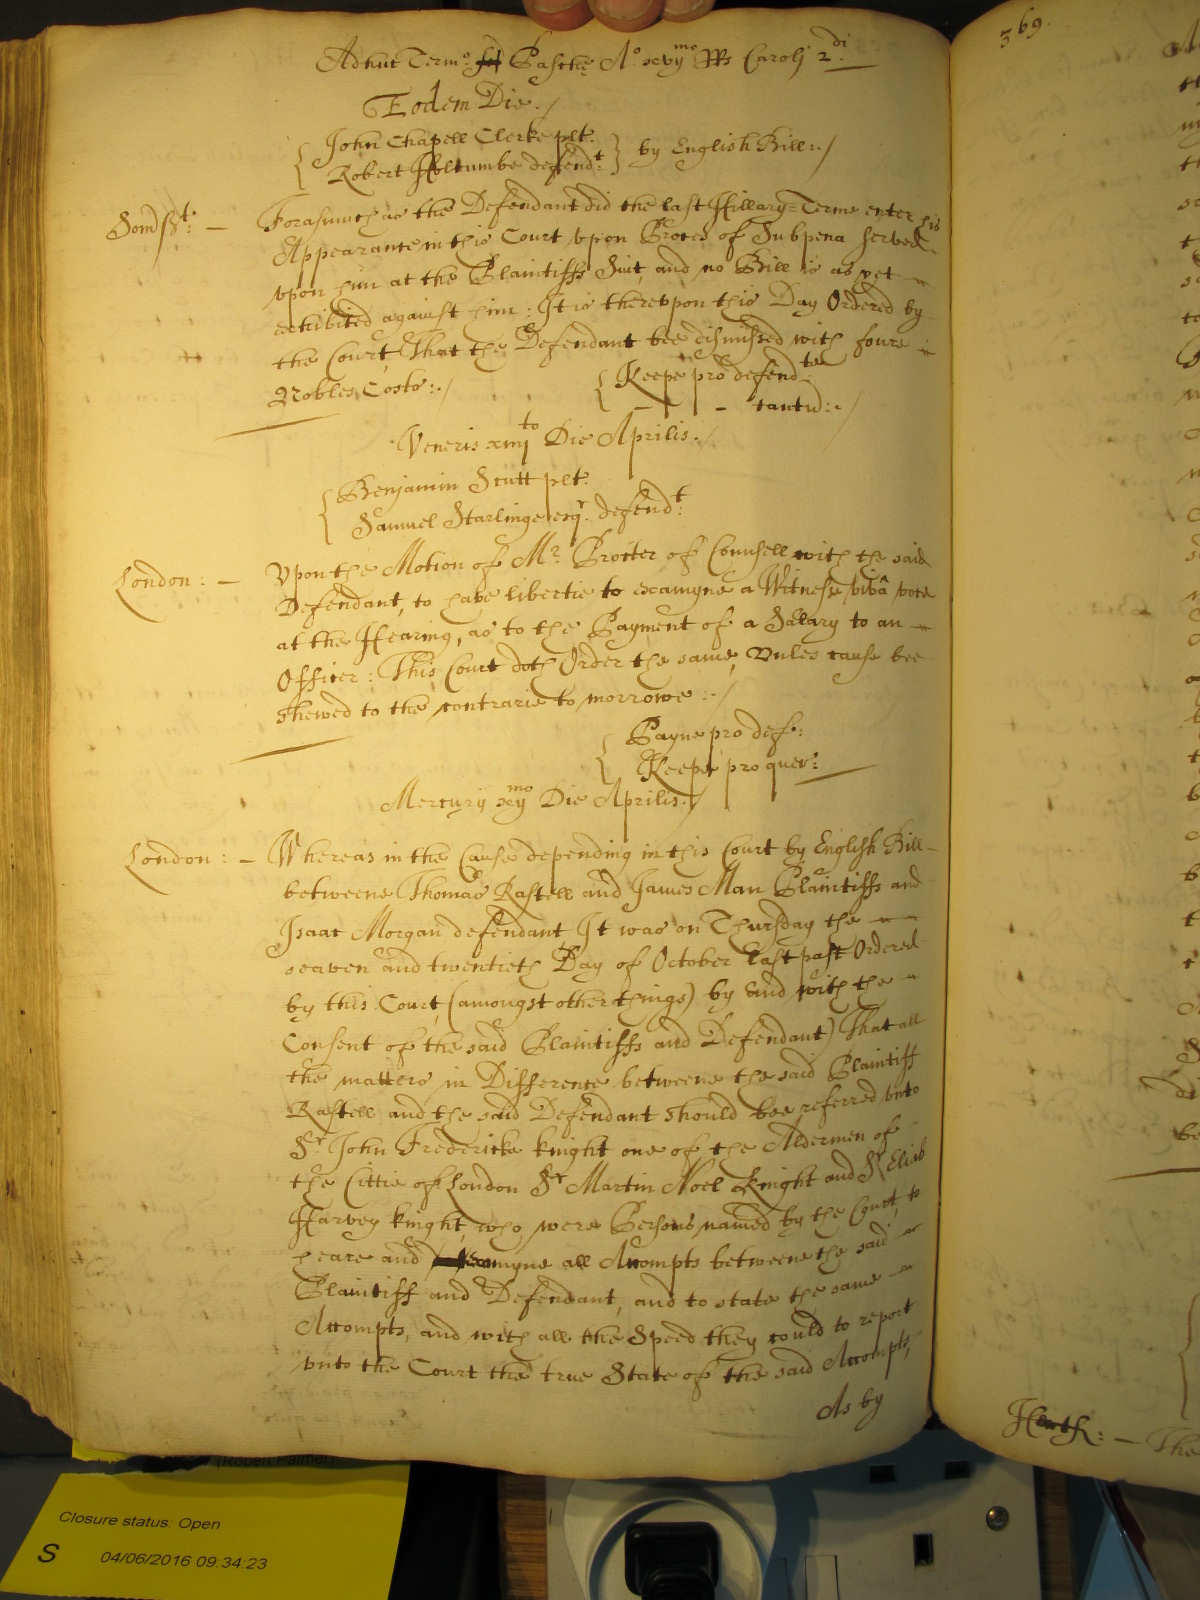 Adhuc Termo: Pasche Ao xvijmo Rs Caroli 2di
Eodem Die./
John Chapell Clerke plt.
Robert Holcumbe defendt: } by English Bill:./
Somsst: - Forasmuch as the Defendant did the last Hillary=Terme enter his
Appearance in this Court vpon Proces of Subpena served
vpon him at the Plaintiffs Suit, and no Bill is as yet
exhibited against him: It is therevpon this Day Ordered by
the Court, That the Defendant bee dismissed with foure
Nobles Costs:./
Keepe pro defend
tantu:./
Veneris xiiijto Die Aprilis./
Benjamin Scutt plt.
Samuel Starlinge esqr. defendt:
London: - Vpon the Motion of Mr. Procter of Counsell with the said
Defendant, to have libertie to examyne a Witnesse vivâ voce
at the Hearing, as to the Payment of a Salary to an
Officer: This Court doth Order the same, vnles cause bee
shewed to the contrarie to morrowe:./
Payne pro def:
Keepe pro quer:
Mercurij Die Aprilis./
London: - Whereas in the Cause depending in this Court by English Bill
betweene Thomas Rastell and James Man Plaintiffs and
Isaac Morgan defendant It was on Thursday the
seaven and twentieth Day of October last past Ordered
by this Court (amongst other things) by and with the
Consent of the said Plaintiffs and Defendant) That all
the matters in Difference betweene the said Plaintiff
Rastell and the said Defendant should bee referred vnto
Sr John Fredericke knight one of the Aldermen of
the Cittie of London Sr Martin Noel Knight and Sr Eliab
Harvey knight, who were Persons named by the Court, to
heare and examyne all Accompts betweene the said
Plaintiff and Defendant, and to state the same
Accompts, and with all the Speed they could to report
vnto the Court the true State of the said Accompts,
As by
369.
The
(Robert Palmer)
Closure status: Open
S 04/06/2016 09:34:23